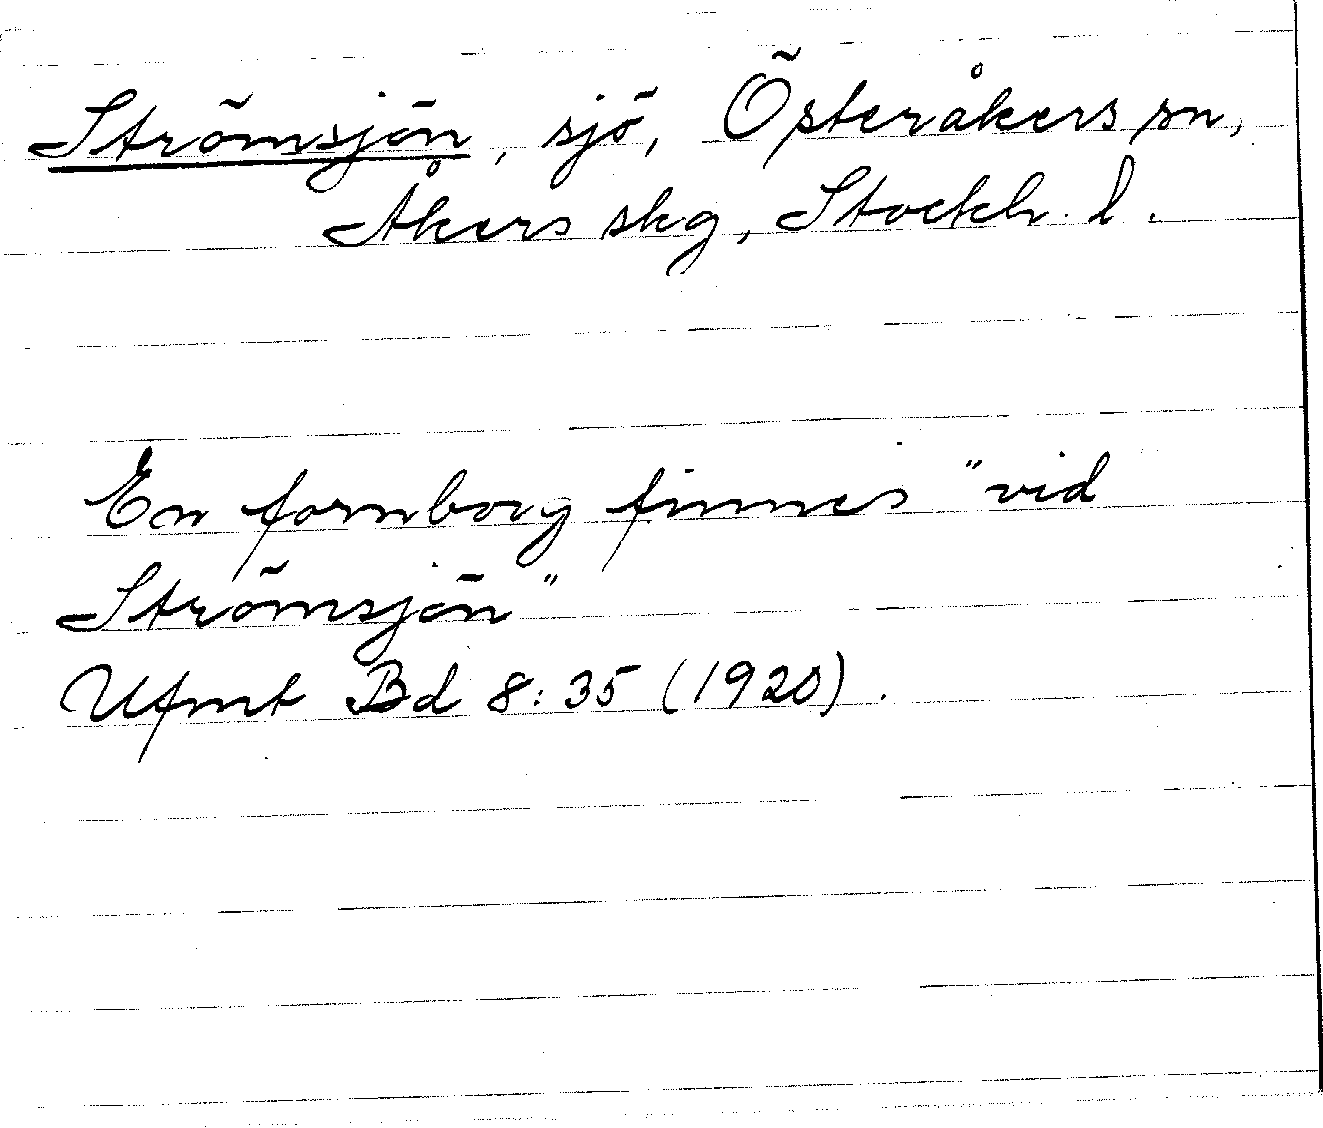 Strömsjön, sjö, Österåkers sn,
Åkers skg, Stockh. l.
En fornborg finnes "vid
Strömsjön"
Ufmt Bd 8:35 (1920).